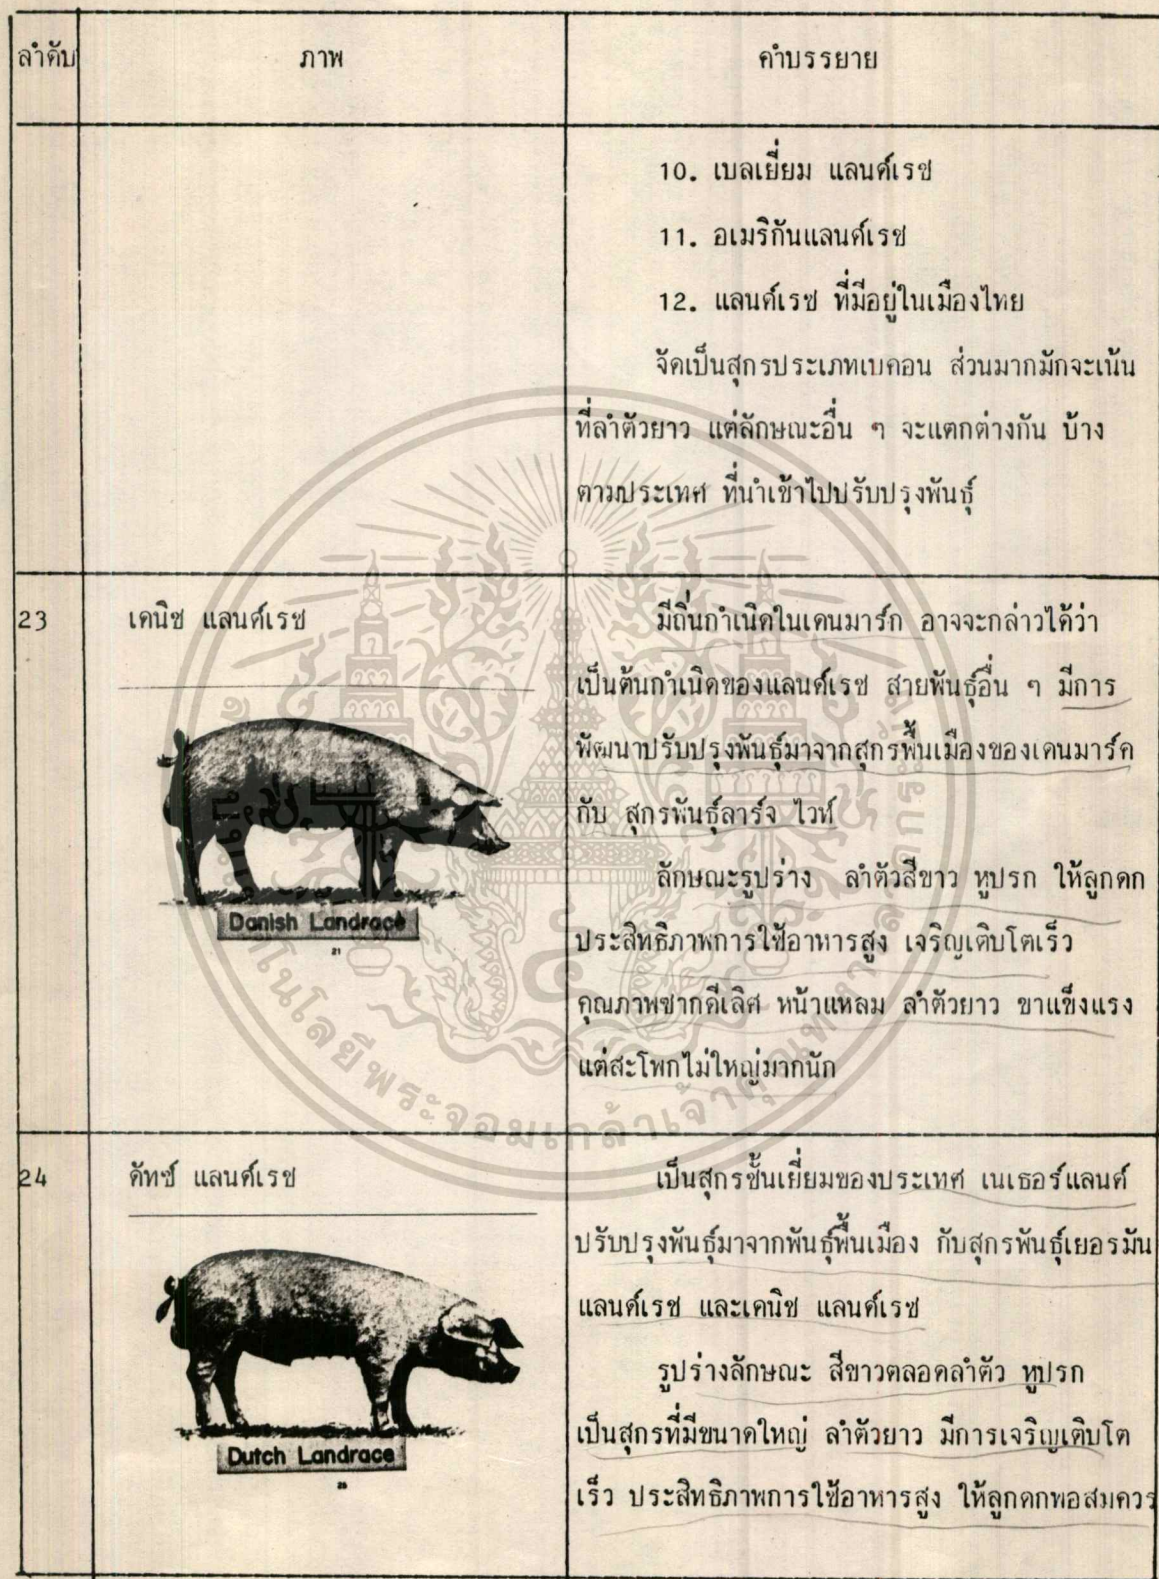 ลำดับ ภาพ คำบรรยาย
10. เบลเยี่ยม แลนด์เรซ
11. อเมริกันแลนด์เรซ
12. แลนด์เรซ ที่มีอยู่ในเมืองไทย
จัดเป็นสุกรประเภทเบคอน ส่วนมากมักจะเน้น
ที่ลำตัวยาว แต่ลักษณะอื่น ๆ จะแตกต่างกัน บ้าง
ตามประเทศ ที่นำเข้าไปปรับปรุงพันธุ์
23 เดนิช แลนด์เรซ
มีถิ่นกำเนิดในเดนมาร์ก อาจจะกล่าวได้ว่า
เป็นต้นกำเนิดของแลนด์เรซ สายพันธุ์อื่น ๆ มีการ
พัฒนาปรับปรุงพันธุ์มาจากสุกรพื้นเมืองของเดนมาร์ค
กับ สุกรพันธุ์ลาร์จ ไวท์
ลักษณะรูปร่าง ลำตัวสีขาว หูปรก ให้ลูกดก
ประสิทธิภาพการใช้อาหารสูง เจริญเติบโตเร็ว
คุณภาพซากดีเลิศ หน้าแหลม ลำตัวยาว ขาแข็งแรง
แต่สะโพกไม่ใหญ่มากนัก
Danish Landrace
21
24 ดัทช์ แลนด์เรซ
เป็นสุกรชั้นเยี่ยมของประเทศ เนเธอร์แลนด์
ปรับปรุงพันธุ์มาจากพันธุ์พื้นเมือง กับสุกรพันธุ์เยอรมัน
แลนด์เรซ และเดนิช แลนด์เรซ
รูปร่างลักษณะ สีขาวตลอดลำตัว หูปรก
เป็นสุกรที่มีขนาดใหญ่ ลำตัวยาว มีการเจริญเติบโต
เร็ว ประสิทธิภาพการใช้อาหารสูง ให้ลูกดกพอสมควร
Dutch Landrace